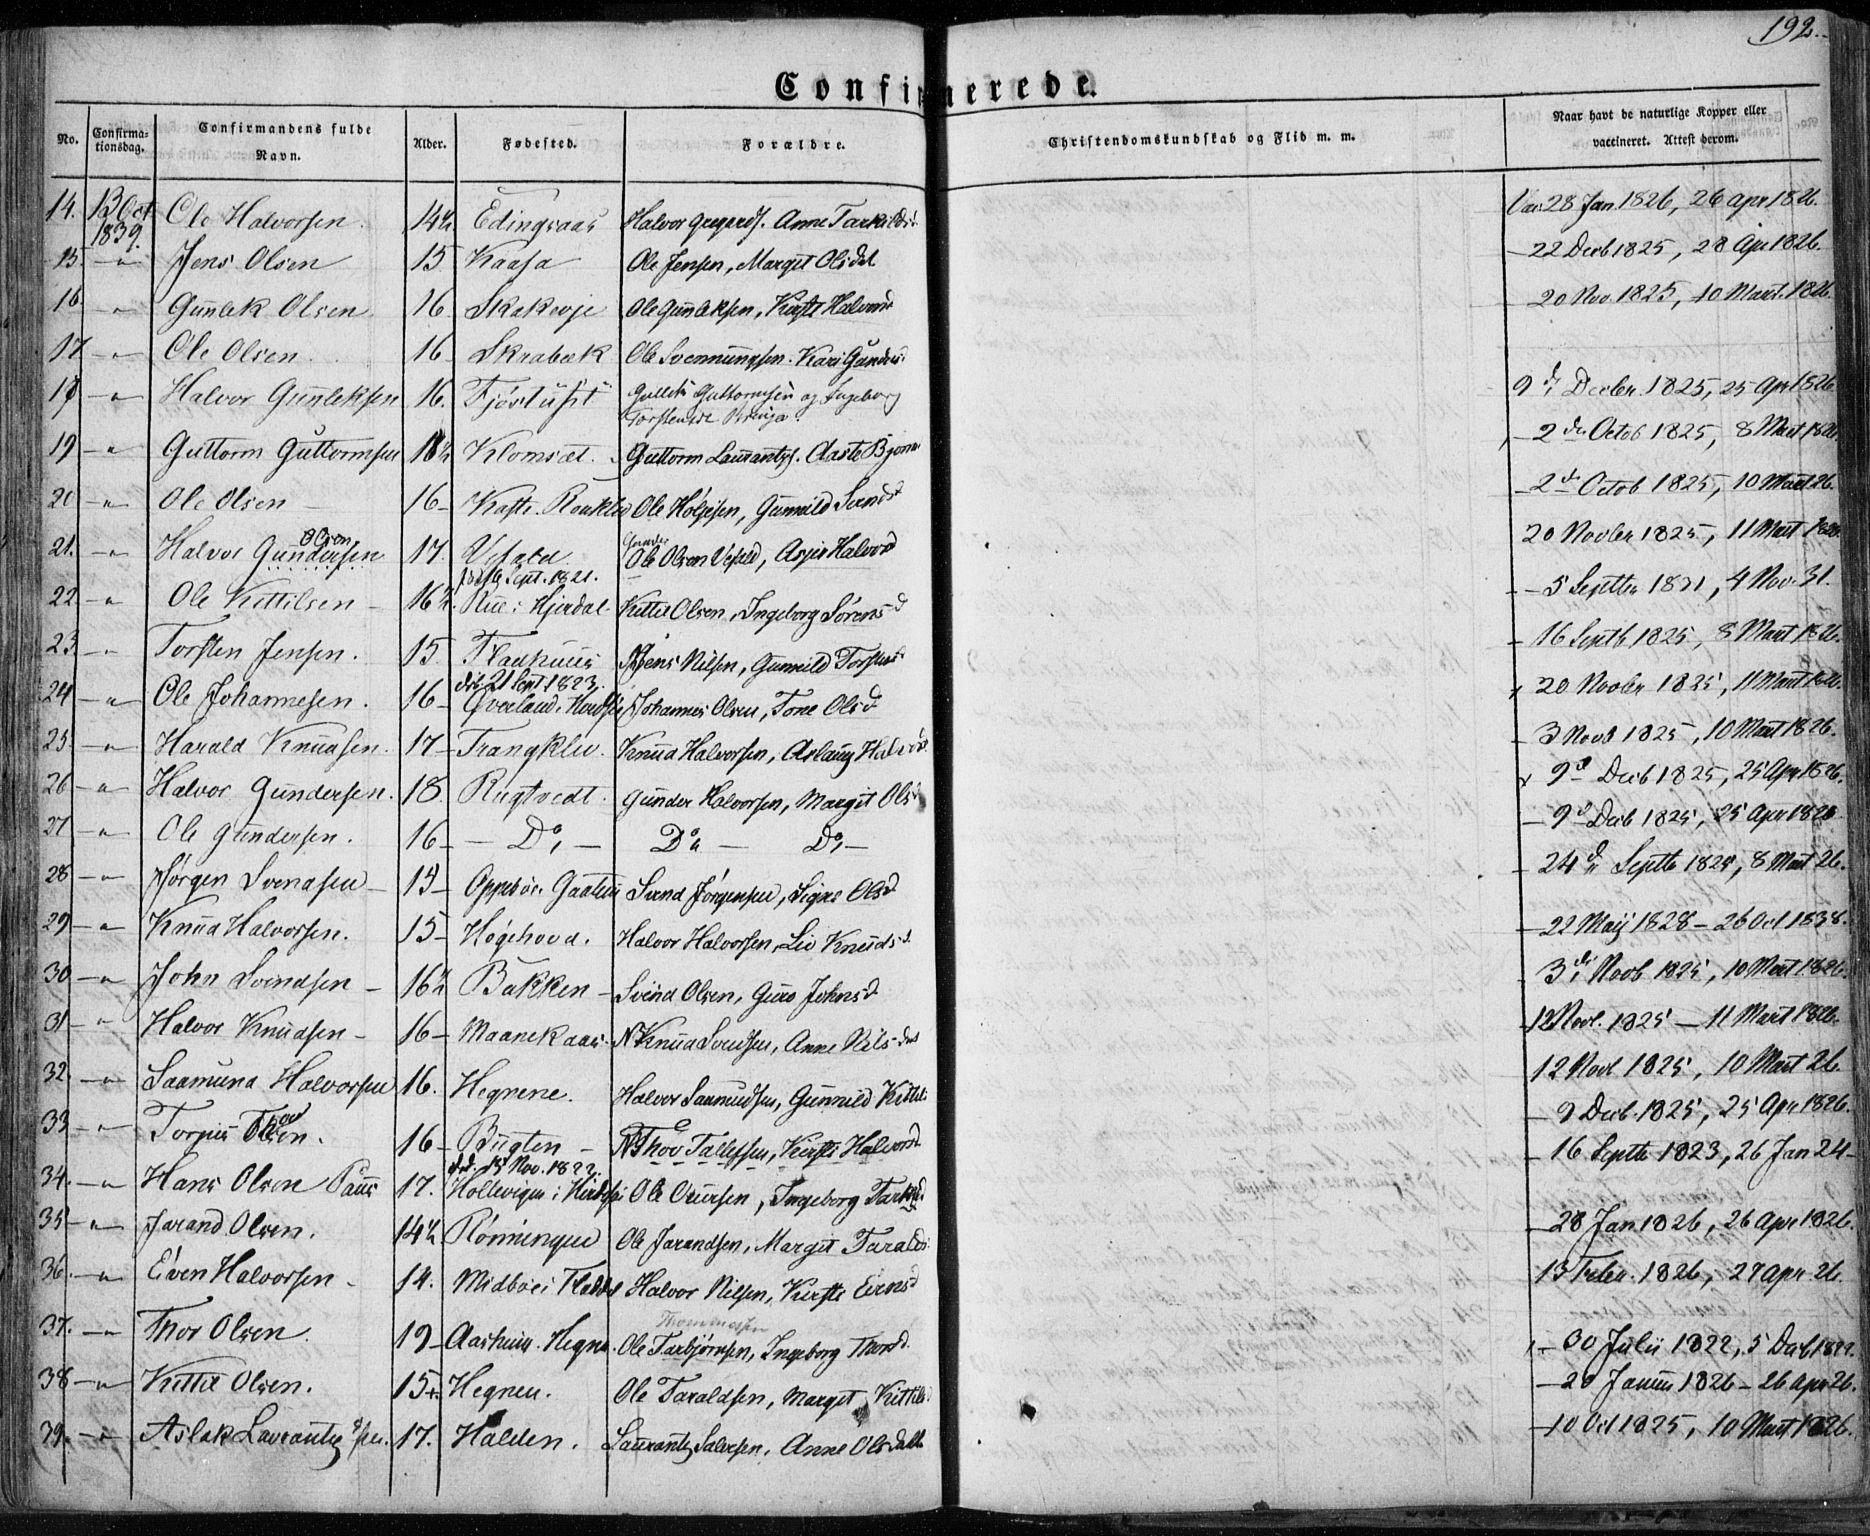 192.
Confirmerede.
No. Confirmationsdag. Confirmandens fulde Navn. Alder. Fødested. Forældre. Christendomskundskab og Flid m. m. Naar havt de naturlige Kopper eller vaccineret. Attest derom.
14. 13 Oct 1839. Ole Halvorsen. 14½ Edingsaas Halvor Gregersf. Anne Tarkildsd. Vac 28 Jan 1826, 26 Apr 1826.
15. — " — Jens Olsen 15 Kaasa Ole Jensen, Marget Olsdet — 22 Decb 1825, 28 Apr 1826.
16. — " — Gunlek Olsen 16. Skakevje Ole Gunleksen, Kirste Halvorsd 20 Nov. 1825, 10 Mart. 1826.
17 — " — Ole Olsen. 16 — Skrabæk Ole Svennungsen. Kari Gunders.
18 — " — Halvor Gunleksen 16. Guttormsen og Ingeborg 9 d Decbr 1825, 25 Apr 1826
Torstensdr
19 — " — Guttorm Guttormsen 18½ Klomsæt. Guttorm Laurantzs. Aaste Bjørns — 2 den Octob 1825, 8 Mart 1826.
20 — " — Ole Olsen — 16 — Ole Holjesen, Gunnild Svendsd — 2 d Octob 1825, 10 Mart 26.
21. — " — Halvor Gundersen Olsen 17. Vefald Gunder Ole Olsen Vefald, Asjer Halvorsd 20 Novbr 1825, 11 Mart 1826.
Sept. 1821.
22 — " — Ole Kittilsen — 16½. Rue i Hjerdal. Kittel Olsen, Ingeborg Sørensd — 5 Septbr 1831, 4 Nov. 31.
23. — " Torsten Jensen. 15. Fladhuus Jens Nilsen, Gunnild Torstensd — 16 Septb 1825, 8 Mart 1826.
21 Sept 1823.
24 — " — Ole Johannesen. 16 — Qverland. Johannes Olsen, Tone Olsd. 20 Novbr 1825, 11 Mart 1826.
25. — " — Harald Knudsen. 17 — Trangklev. Knud Halvorsen, Aslaug Halvorsd. — 3 Novb 1825, 10 Mart 1826.
26 — " — Halvor Gundersen. 18. Rugtvedt. Gunder Halvorsen, Margit Olsd 9 d Decb 1825, 25 Apr 1826.
27 — " — Ole Gundersen. 16 — — Do, — Do — Do, — — 9 d Decb 1825, 25 Apr 1826
28 — " — Jørgen Svendsen — 15 — Oppebøe. Gaasen Svend Jørgensen, Signe Olsd — 24 d Septb 1825, 8 Mart 26.
29 — " — Knud Halvorsen. 15 — Høgehovd. Halvor Halvorsen, Liv Knudsd. — 22 Maij 1828 — 26 Oct 1838.
30 — " — John Svendsen — 16½ Bakken — Svend Olsen, Guro Johnsd — 3 d Novb 1825, 10 Mart 1826.
31 — " Halvor Knudsen — 16 — Maanekaas. Knud Svendsen, Anne Nilsdat — 12 Novb. 1825 — 11 Mart 1826.
32. — " — Saamund Halvorsen 16. Hegnene. Halvor Saamundsen, Gunnild Kittels 12 Novb 1825, 10 Mart 26.
33 — " — Torgius Thovsen. 16 — Bugten — Thov Tallefsen, Kirsti Halvorsd. — 9 Decb. 1825, 25 Apr 1826.
15 Nov. 1822.
34. — " — Hans Olsen Paus 17. Ole Ouersen, Ingeborg Tarkilsd — 16 Septb 1823, 26 Jan 24 —
35 — " — Jarand Olsen. 14½ Rønningen Ole Jarandsen, Marget Taraldsd — 28 Jan 1826, 26 Apr 1826.
36. — " Even Halvorsen — 14. Midbøe i Halvor Nilsen, Kirsti Evensd 15 Febr. 1826, 27 Apr 26.
37. — " — Thor Olsen. 19 — Aashuus. Hegna. Ole Tarbjørnsen, Ingeborg Thorsd. Thommassen — 30 Julii 1822, 5 Decb 1822.
38 — " — Kittil Olsen. 15 Hegnen. Ole Taraldsen, Marget Kittilsd — 28 Januii 1826 — 26 Apr 26.
39. — " — Aslak Laurantzsen. 17. Halden. Laurantz Salvesen, Anne Olsdatt — 10 Oct 1825, 10 Mart 1826.